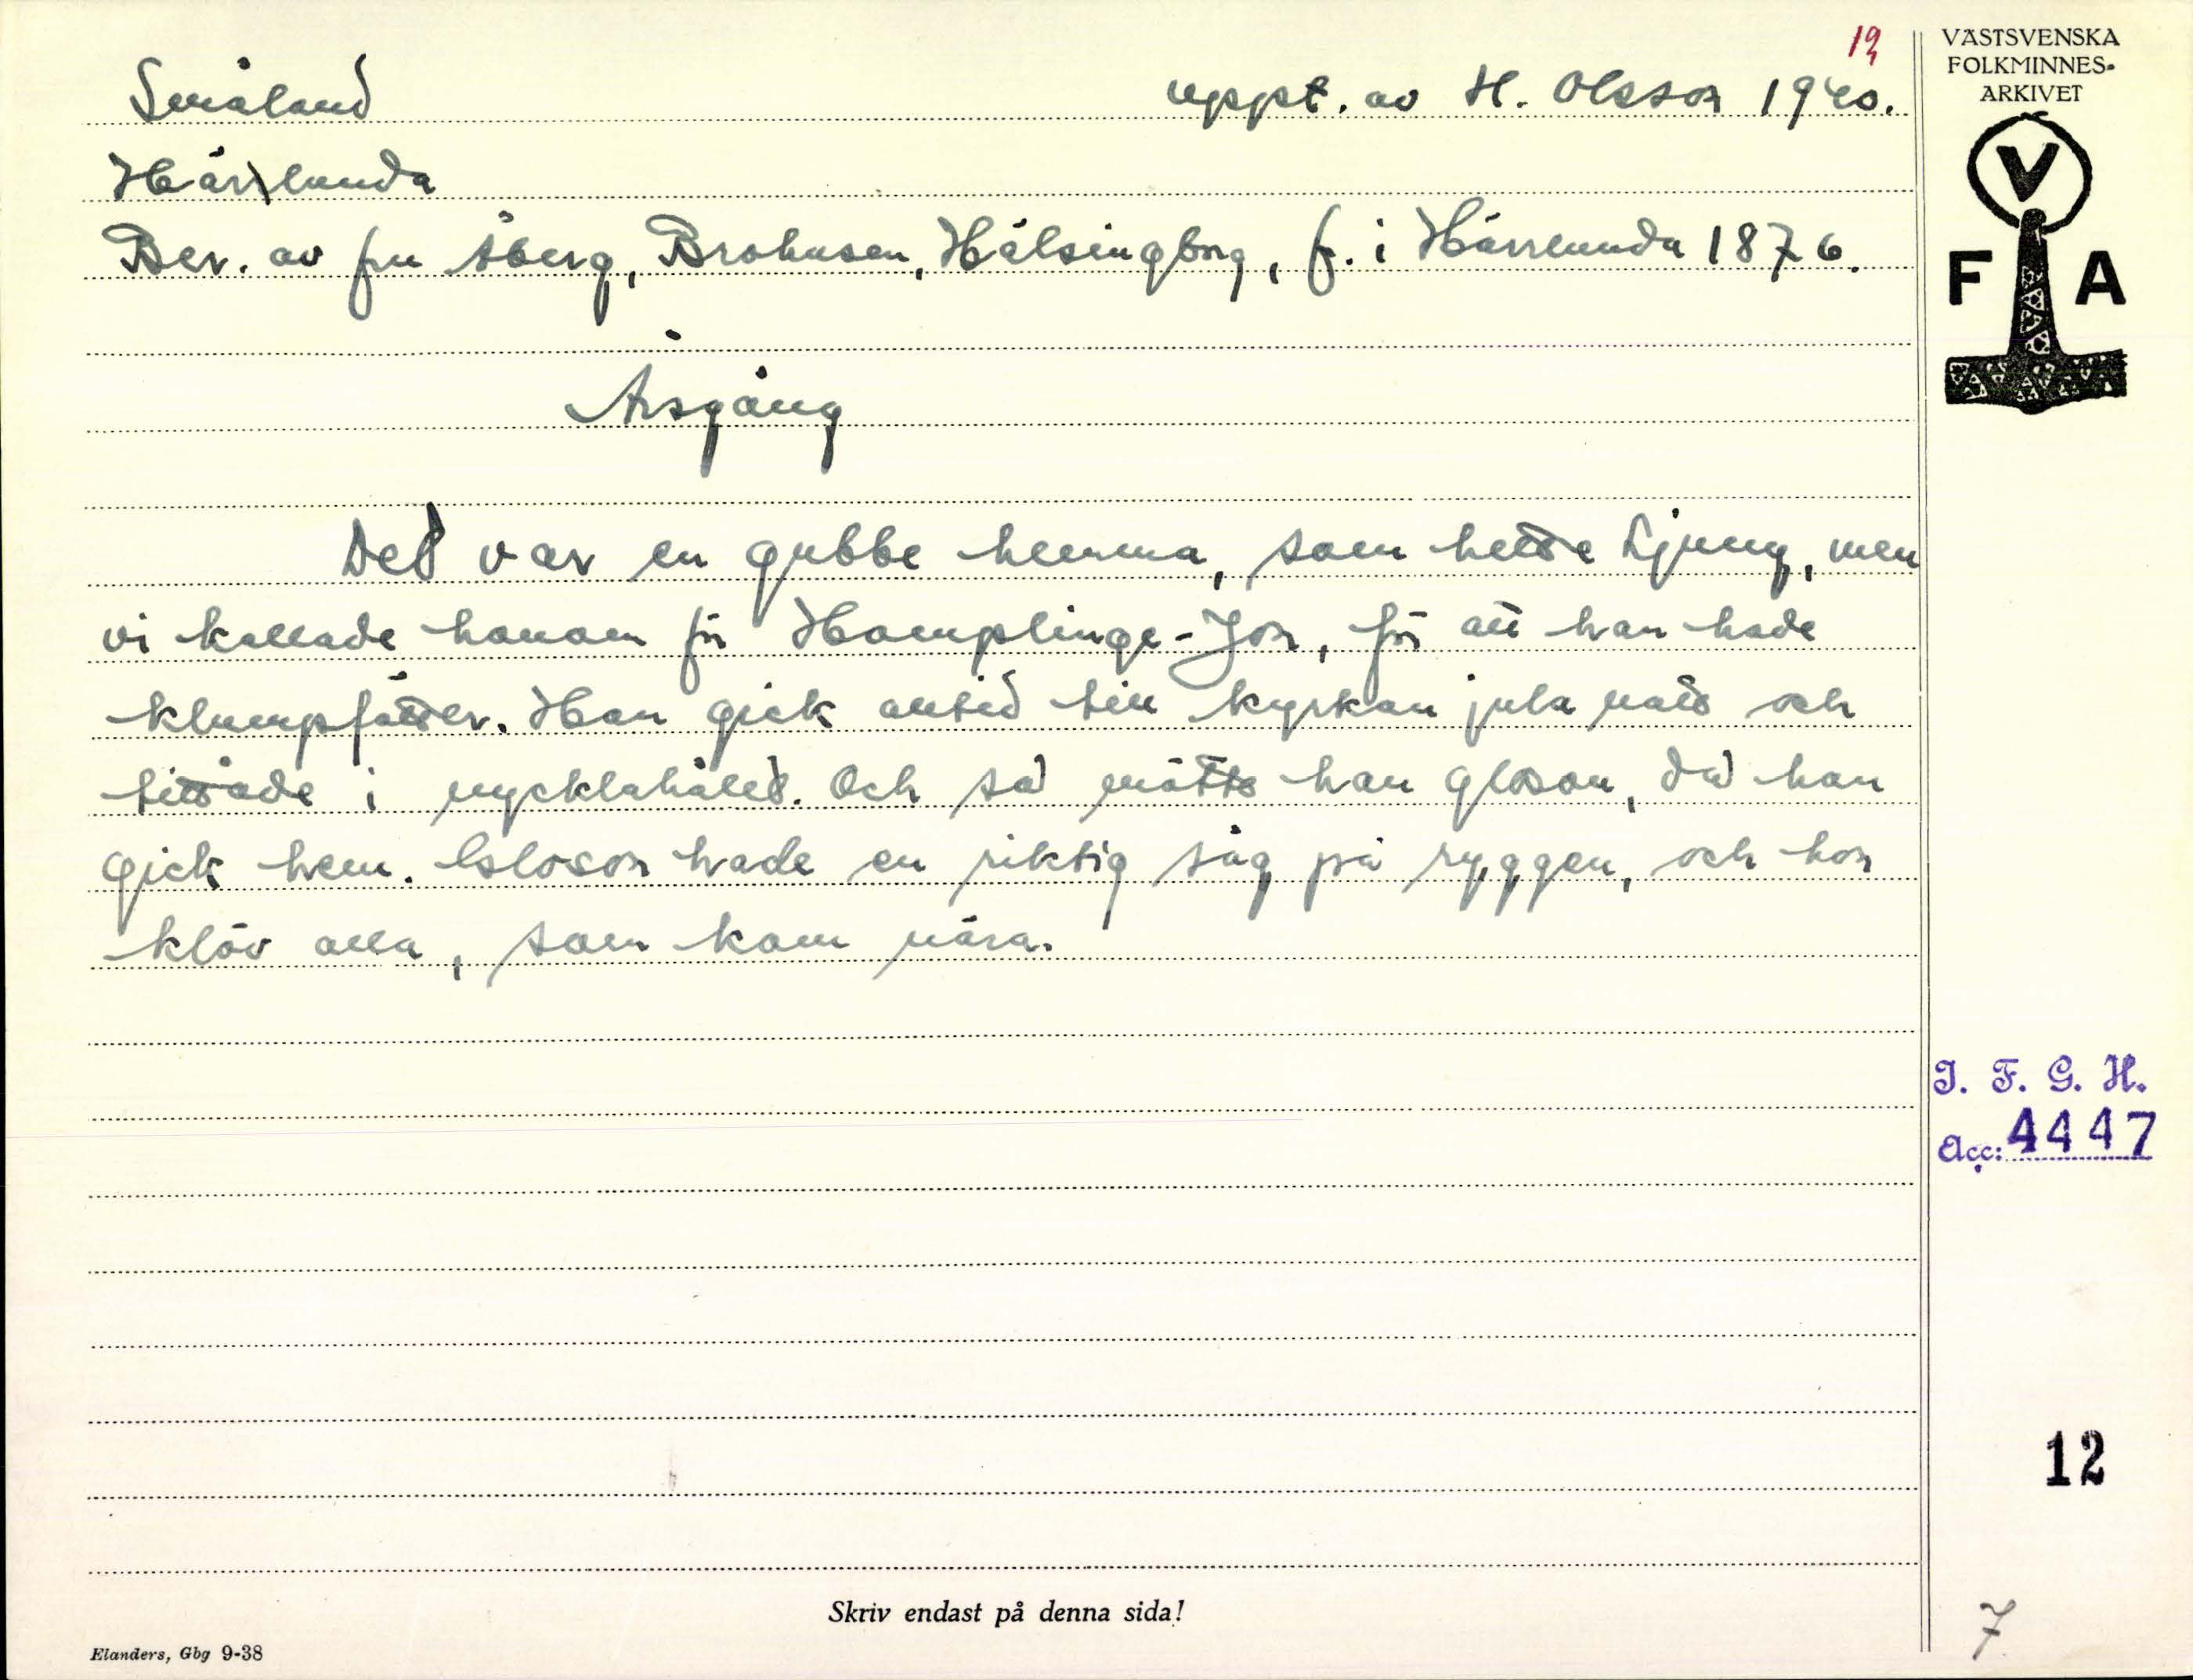 12
Småland uppt. av H. Olsson 1940.
Härlunda
Ber. av fru Åberg, Brohusen, Hälsingborg, f. i Härrlunda 1876.
Årsgång
Det var en gubbe hemma, som hette Ljung, men
vi kallade honom för Hamplinge-Jon, för att han hade
klumpfötter. Han gick alltid till kyrkan jula natt och
tittade i nycklahålet. Och så mötte han gloson, då han
gick hem. Gloson hade en riktig såg på ryggen, och hon
klöv alla, som kom nära.
Skriv endast på denna sida!
Elanders, Gbg 9-38
VÄSTSVENSKA
FOLKMINNES-
ARKIVET
V
F A
I. F. G. H.
Acc: 4447
12
7